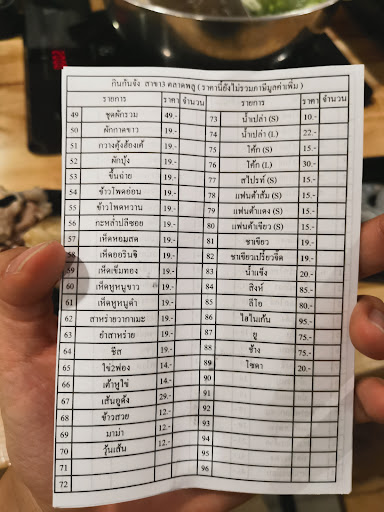 กินกันจัง สาขา3 ตลาดพลู ( ราคานี้ยังไม่รวมภาษีมูลค่าเพิ่ม )
รายการ ราคา จำนวน
49 ชุดผักรวม 49.-
50 ผักกาดขาว 19.-
51 กวางตุ้งฮ่องเต้ 19.-
52 ผักบุ้ง 19.-
53 ขึ้นฉ่าย 19.-
54 ข้าวโพดอ่อน 19.-
55 ข้าวโพดหวาน 19.-
56 กะหล่ำปลีซอย 19.-
57 เห็ดหอมสด 19.-
58 เห็ดออรินจิ 19.-
59 เห็ดเข็มทอง 19.-
60 เห็ดหูหนูขาว 19.-
61 เห็ดหูหนูดำ 19.-
62 สาหร่ายวากาเมะ 19.-
63 ยำสาหร่าย 19.-
64 ชีส 19.-
65 ไข่2ฟอง 14.-
66 เต้าหู้ไข่ 14.-
67 เส้นอูด้ง 29.-
68 ข้าวสวย 12.-
69 มาม่า 12.-
70 วุ้นเส้น 12.-
71
72
รายการ ราคา จำนวน
73 น้ำเปล่า (S) 10.-
74 น้ำเปล่า (L) 22.-
75 โค้ก (S) 15.-
76 โค้ก (L) 30.-
77 สไปรท์ (S) 15.-
78 แฟนต้าส้ม (S) 15.-
79 แฟนต้าแดง (S) 15.-
80 แฟนต้าเขียว (S) 15.-
81 ชาเขียว 19.-
82 ชาเขียวเปรี้ยวจี๊ด 19.-
83 น้ำแข็ง 20.-
84 สิงห์ 85.-
85 ลีโอ 80.-
86 ไฮไนเก้น 95.-
87 ยู 75.-
88 ช้าง 75.-
89 โซดา 20.-
90
91
92
93
94
95
96